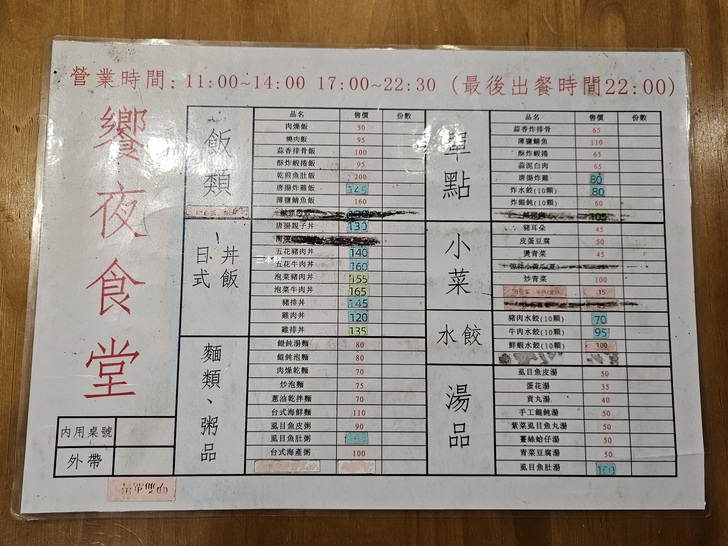 營業時間: 11:00~14:00 17:00~22:30 (最後出餐時間22:00)
饗夜食堂
內用桌號
外帶
飯類
品名 售價 份數
肉燥飯 30
燒肉飯 95
蒜香排骨飯 100
酥炸蝦捲飯 95
乾煎魚肚飯 200
唐揚炸雞飯 145
薄鹽鯖魚飯 160
日式丼飯
唐揚親子丼 130
五花豬肉丼 140
五花牛肉丼 160
泡菜豬肉丼 155
泡菜牛肉丼 165
豬排丼 145
雞肉丼 120
雞排丼 135
麵類、粥品
餛飩湯麵 80
餛飩泡麵 80
肉燥乾麵 70
炒泡麵 75
蔥油乾拌麵 70
台式海鮮麵 110
虱目魚皮粥 90
虱目魚肚粥
台式海產粥 100
單點
品名 售價 份數
蒜香炸排骨 65
薄鹽鯖魚 110
酥炸蝦捲 65
蒜泥白肉 65
唐揚炸雞 80
炸水餃(10顆) 80
炸餛飩(10顆) 60
105
小菜
豬耳朵 45
皮蛋豆腐 50
燙青菜 45
炒青菜 100
15
水餃
豬肉水餃(10顆) 70
牛肉水餃(10顆) 95
鮮蝦水餃(10顆) 100
湯品
虱目魚皮湯 50
蛋花湯 35
貢丸湯 40
手工餛飩湯 50
紫菜虱目魚丸湯 50
薑絲蛤仔湯 50
青菜豆腐湯 50
虱目魚肚湯 160